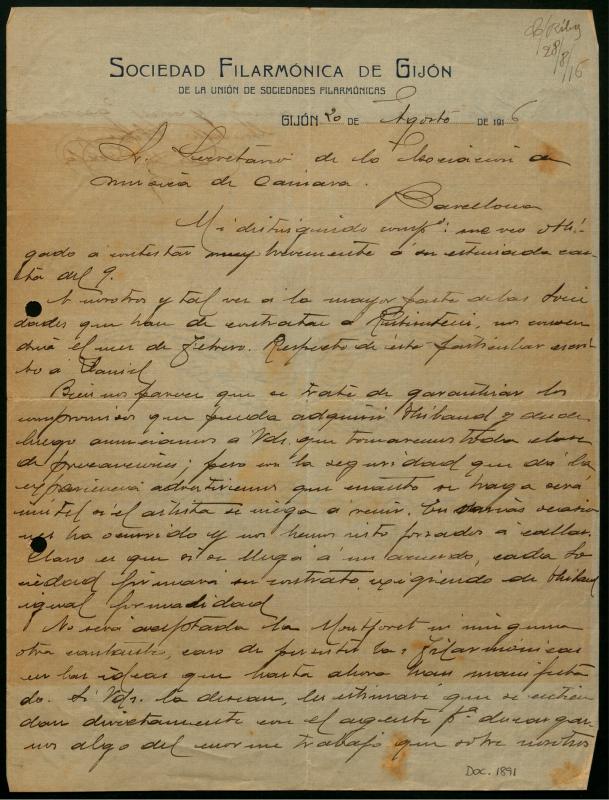 28/8/16
SOCIEDAD FILARMÓNICA DE GIJÓN
DE LA UNIÓN DE SOCIEDADES FILARMÓNICAS
GIJÓN 20 DE Agosto DE 1916
Sr. Secretario de la Asociacion de
musica de Camara.
Barcelona
Mi distinguido compº: me veo obli-
gado a contestar muy brevemente á su estimada car-
ta del 9.
A nosotros y tal vez á la mayor parte de las Socie
dades que han de contratar a Rubinstein, nos conven
dria el mes de Febrero. Respecto de este particular escri
bo a Daniel
Bien nos parece que se trate de garantizar los
compromisos que pueda adquirir Thibaud y desde
luego anunciamos á Vds. que tomaremos toda clase
de precauciones; pero con la seguridad que dá la
experiencia advertimos que cuanto se haga será
inútil si el artista se niega á venir. En varias ocasio
nes ha ocurrido y nos hemos visto forzados á callar.
Claro es que si se llega á un acuerdo, cada So
ciedad firmará su contrato, exigiendo de Thibaud
igual formalidad
No será aceptada la Montforet ni ninguna
otra cantante, caso de persistir las Filarmónicas
en las ideas que hasta ahora han manifesta
do. Si Vds. la desean, les estimaré que se entien
dan directamente con el agente pª descargar
nos algo del enorme trabajo que sobre nosotros
DOC. 1891